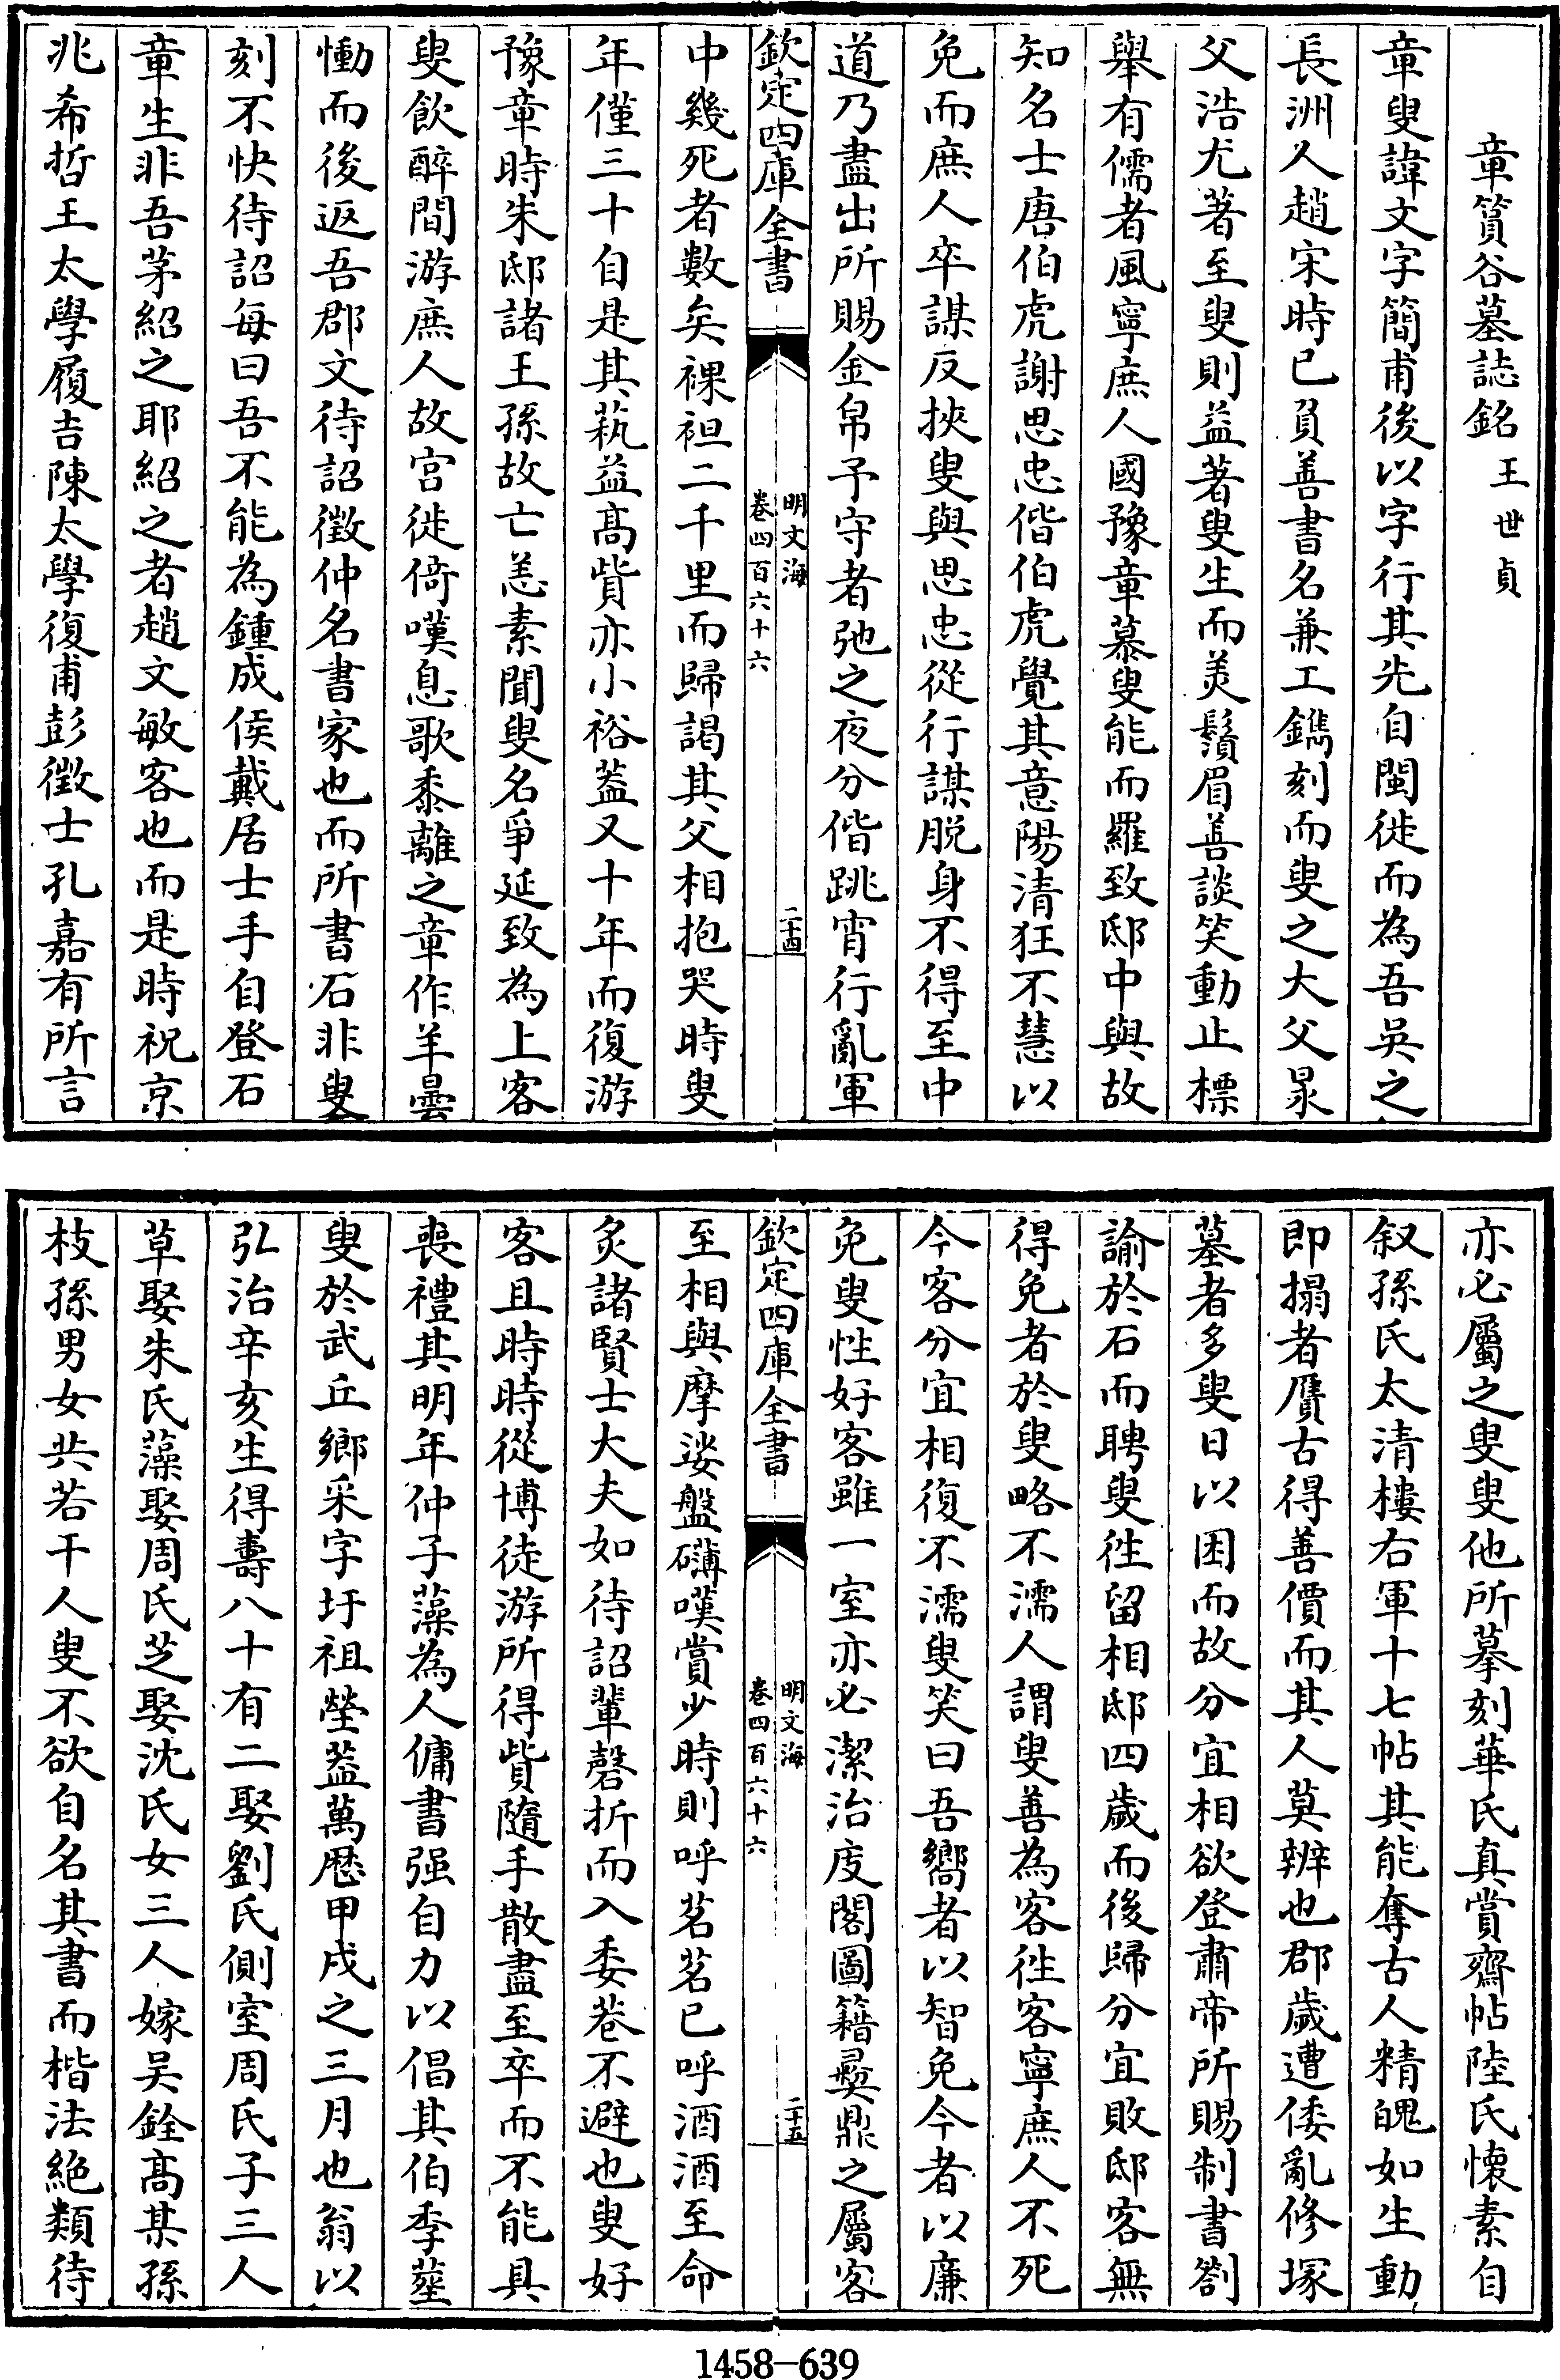 章篔谷墓誌銘王世貞
章叟諱文字簡甫後以字行其先自閩徙而為吾吳之
長洲人趙宋時已負善書名兼工鐫刻而叟之大父杲
父浩尤著至叟則益著叟生而美鬚眉善談笑動止標
舉有儒者風寧庶人國豫章慕叟能而羅致邸中與故
知名士唐伯虎謝思忠偕伯虎覺其意陽清狂不慧以
免而庶人卒謀反挾叟與思忠從行謀脱身不得至中
道乃盡出所賜金帛予守者弛之夜分偕跳宵行亂軍
欽定四庫全書
明文海
卷四百六十六
二十四
中幾死者數矣裸袒二千里而歸謁其父相抱哭時叟
年僅三十自是其蓺益高貲亦小裕葢又十年而復游
豫章時朱邸諸王孫故亡恙素聞叟名爭延致為上客
叟飲醉間游庶人故宮徙倚嘆息歌黍離之章作羊曇
慟而後返吾郡文待詔徵仲名書家也而所書石非叟
刻不快待詔每曰吾不能為鍾成侯戴居士手自登石
章生非吾茅紹之耶紹之者趙文敏客也而是時祝京
兆希哲王太學履吉陳太學復甫彭徵士孔嘉有所言
亦必屬之叟叟他所摹刻華氏真賞齋帖陸氏懷素自
叙孫氏太清樓右軍十七帖其能奪古人精魄如生動
即搨者贋古得善價而其人莫辨也郡歲遭倭亂修塚
墓者多叟日以困而故分宜相欲登肅帝所賜制書劄
諭於石而聘叟徃留相邸四歲而後歸分宜敗邸客無
得免者於叟略不濡人謂叟善為客徃客寧庶人不死
今客分宜相復不濡叟笑曰吾嚮者以智免今者以廉
免叟性好客雖一室亦必潔治庋閣圖籍彞鼎之屬客
欽定四庫全書
明文海
卷四百六十六
二十五
至相與摩娑盤礴嘆賞少時則呼茗茗已呼酒酒至命
炙諸賢士大夫如待詔輩磬折而入委巷不避也叟好
客且時時從博徒游所得貲隨手散盡至卒而不能具
喪禮其明年仲子藻為人傭書强自力以倡其伯季葬
叟於武丘鄉采字圩祖塋葢萬厯甲戌之三月也翁以
弘治辛亥生得壽八十有二娶劉氏側室周氏子三人
草娶朱氏藻娶周氏芝娶沈氏女三人嫁吳銓高某孫
枝孫男女共若干人叟不欲自名其書而楷法絕類待
1458-639